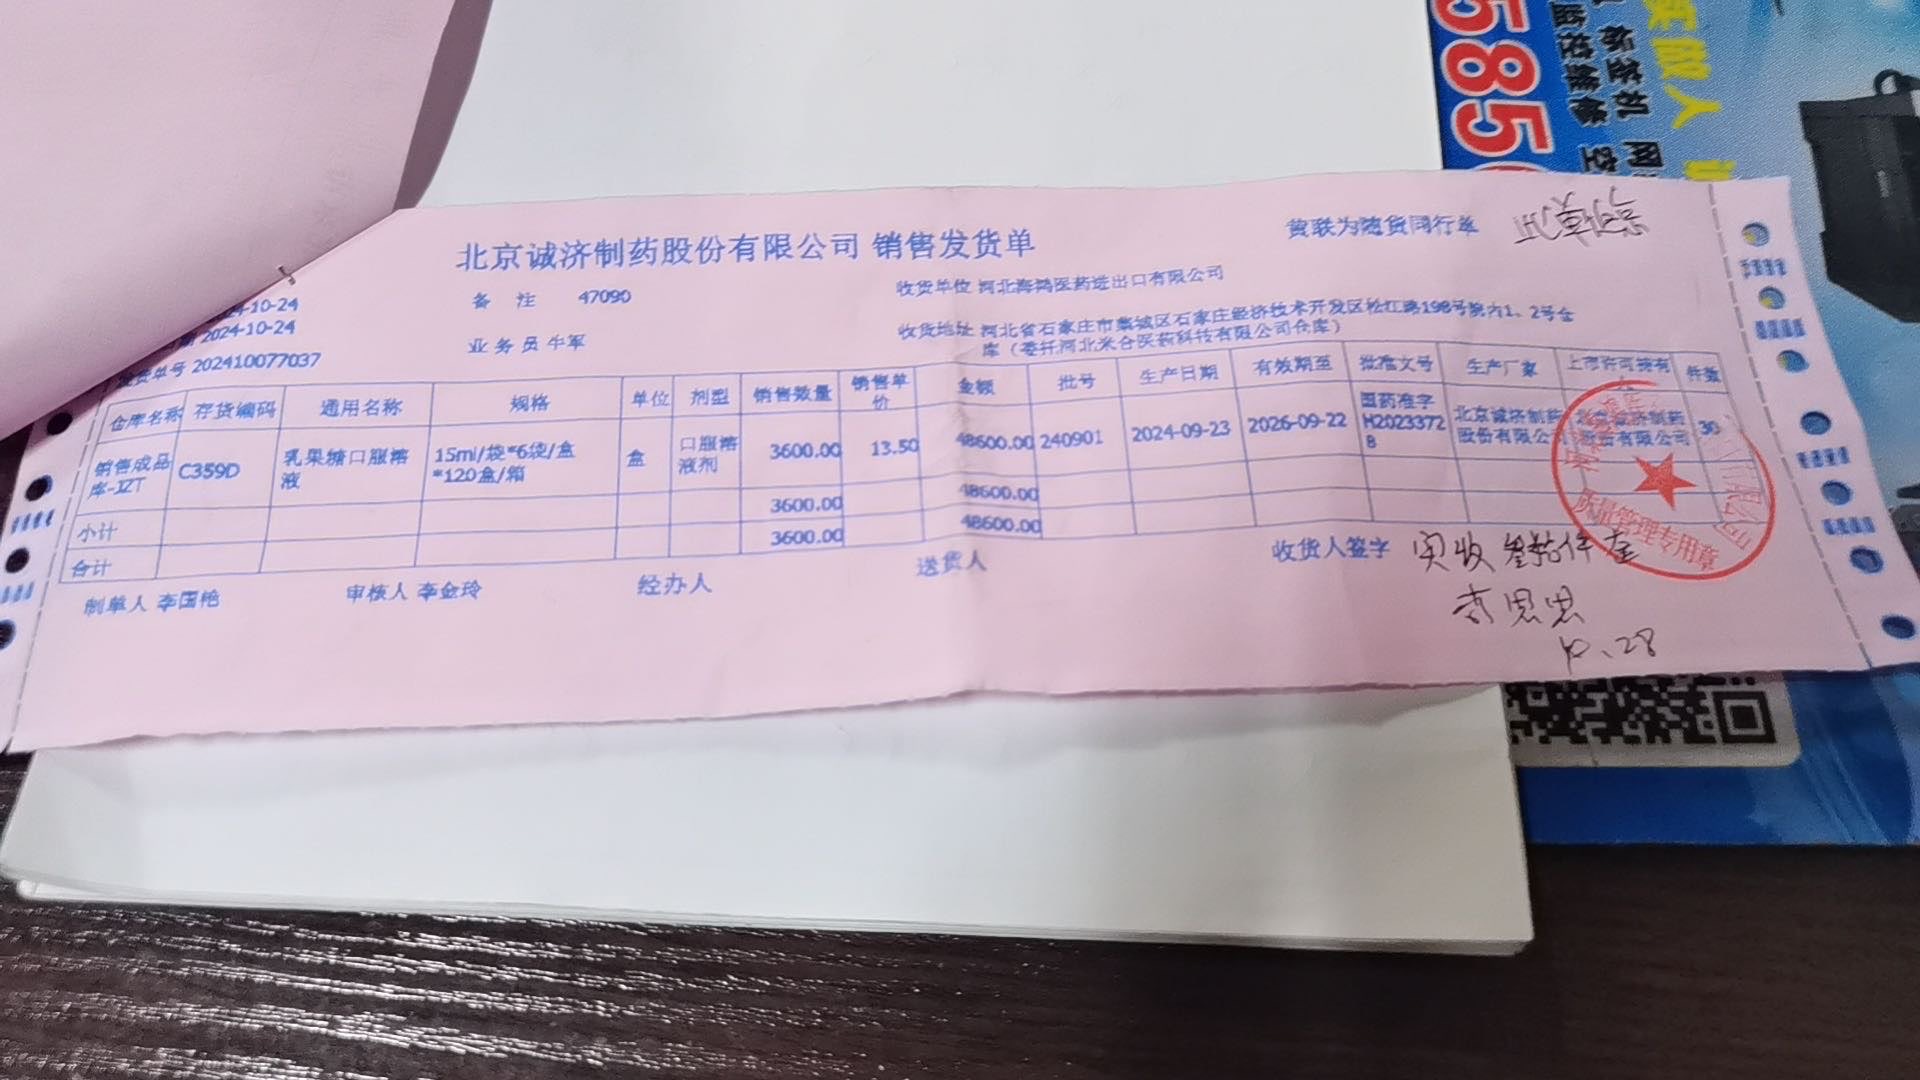 北京诚济制药股份有限公司 销售发货单
黄联为随货同行单
24-10-24
备 注 47090
收货单位 河北海鸿医药进出口有限公司
期 2024-10-24
业务员 牛军
收货地址 河北省石家庄市藁城区石家庄经济技术开发区松江路198号院内1、2号仓
库(委托河北米合医药科技有限公司仓库)
发货单号 202410077037
仓库名称 存货编码 通用名称 规格 单位 剂型 销售数量 销售单价 金额 批号 生产日期 有效期至 批准文号 生产厂家 上市许可持有 件数
销售成品库-JZT C359D 乳果糖口服溶液 15ml/袋*6袋/盒*120盒/箱 盒 口服溶液剂 3600.00 13.50 48600.00 240901 2024-09-23 2026-09-22 国药准字H20233728 北京诚济制药股份有限公司 北京诚济制药股份有限公司 30
小计 3600.00 48600.00
合计 3600.00 48600.00
制单人 李国艳 审核人 李金玲 经办人 送货人 收货人签字 实收叁拾件整
李思思
10.28
质量管理专用章
实做人
标签机 网
监控维修 空
585